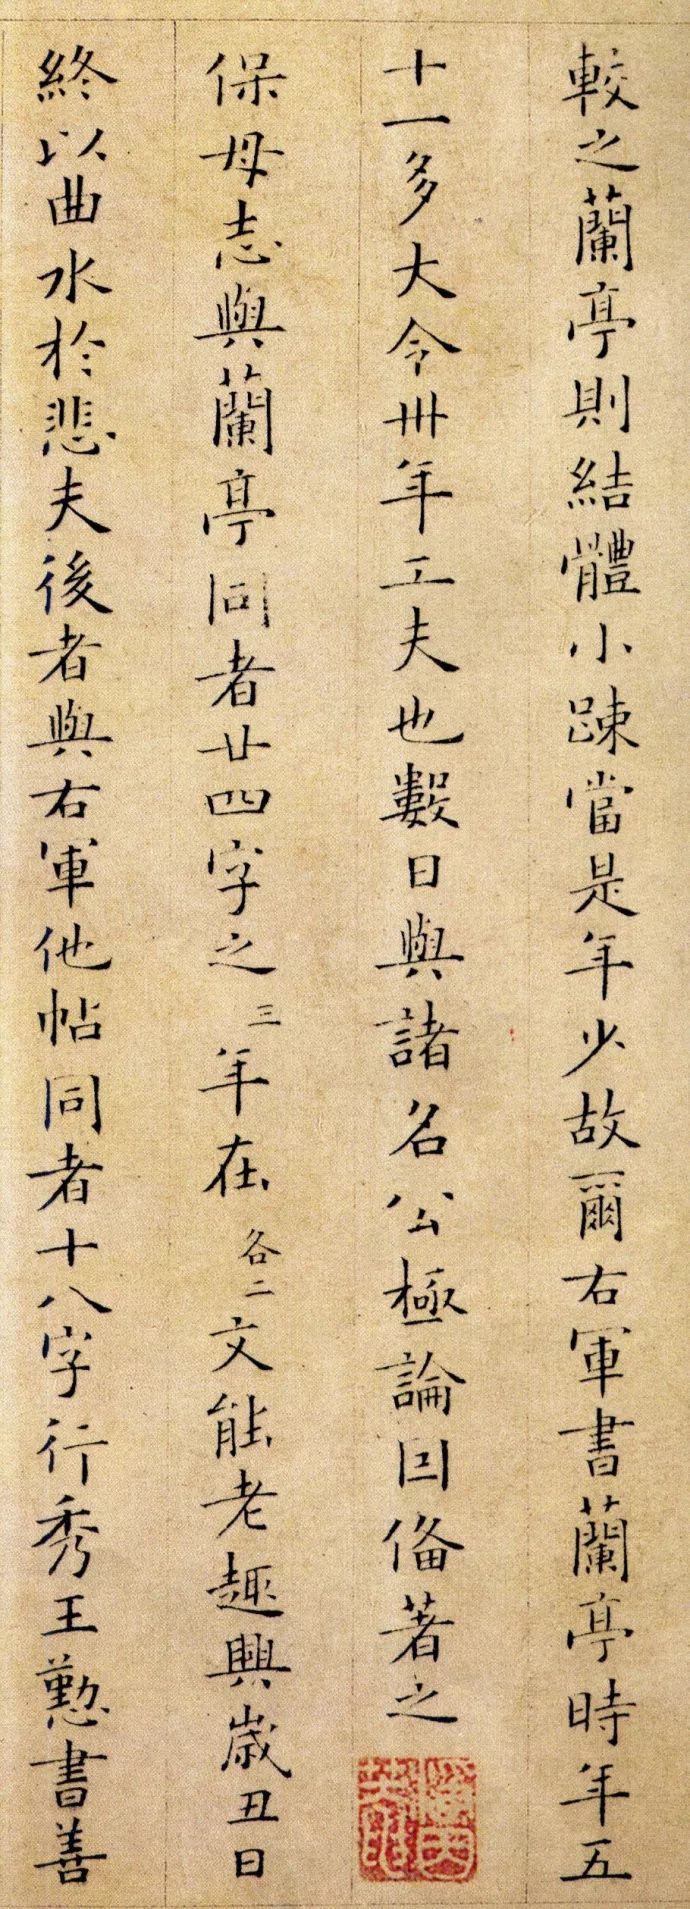 較之蘭亭則結體小踈當是年少故爾右軍書蘭亭時年五
十一多大令卅年工夫也數日與諸名公極論因俻著之
保母志與蘭亭同者廿四字之三年在各二文能老趣興嵗丑日
終以曲水於悲夫後者與右軍他帖同者十八字行秀王懃書善